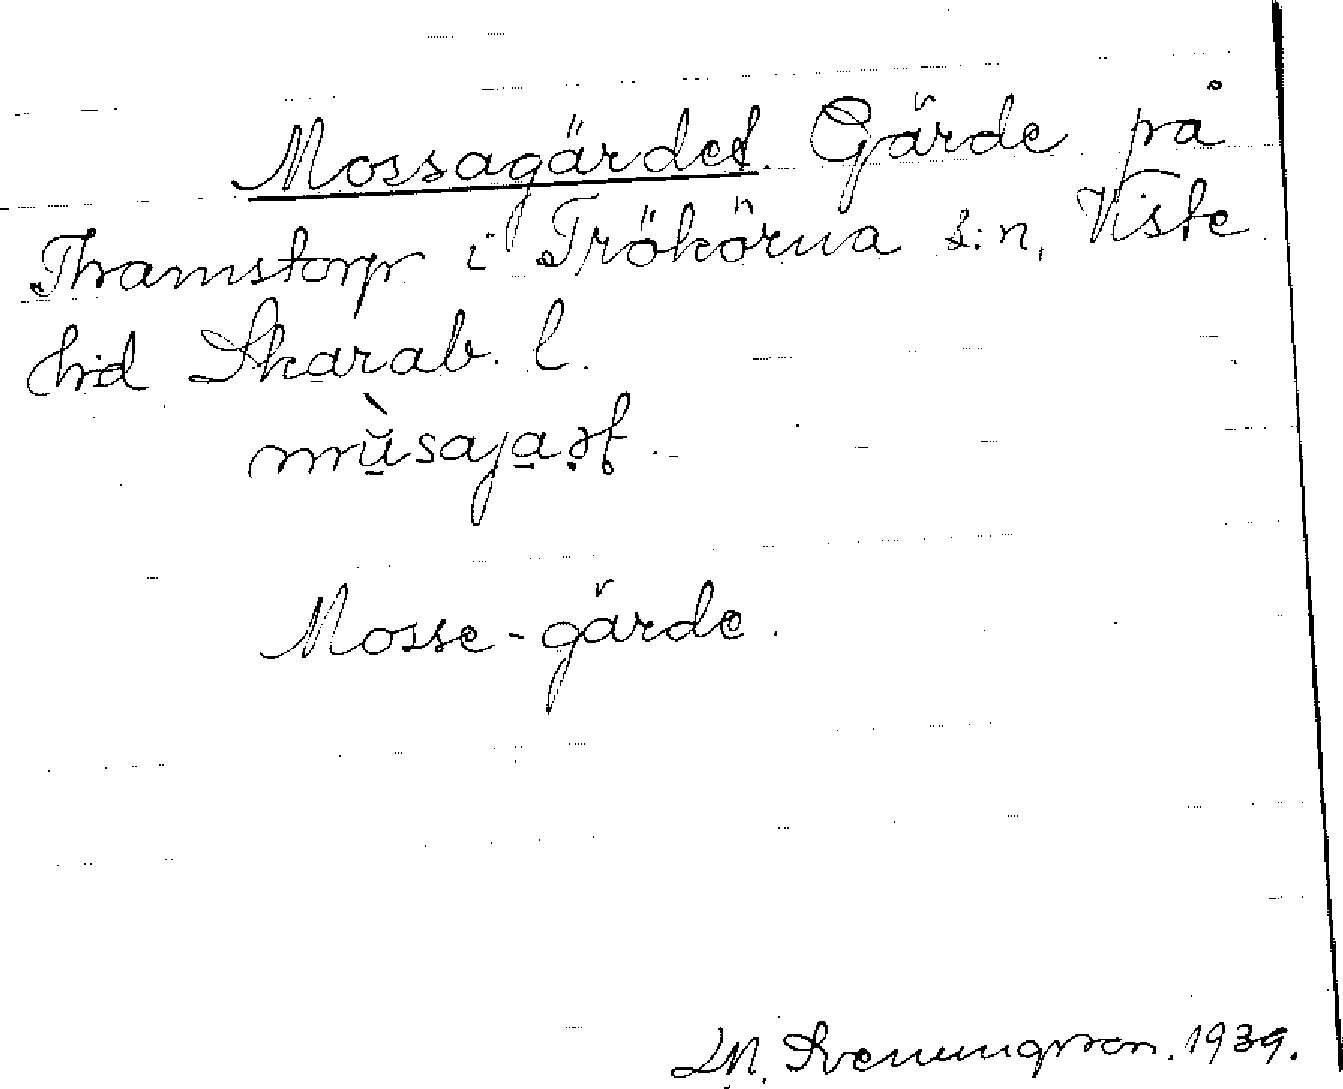 Mossagärdet. Gärde på
Thramstorp i Trökörna s:n, Viste
hd Skarab. l.
mùsajaṛt.
Mosse-gärde.
M. Svenungsson. 1939.